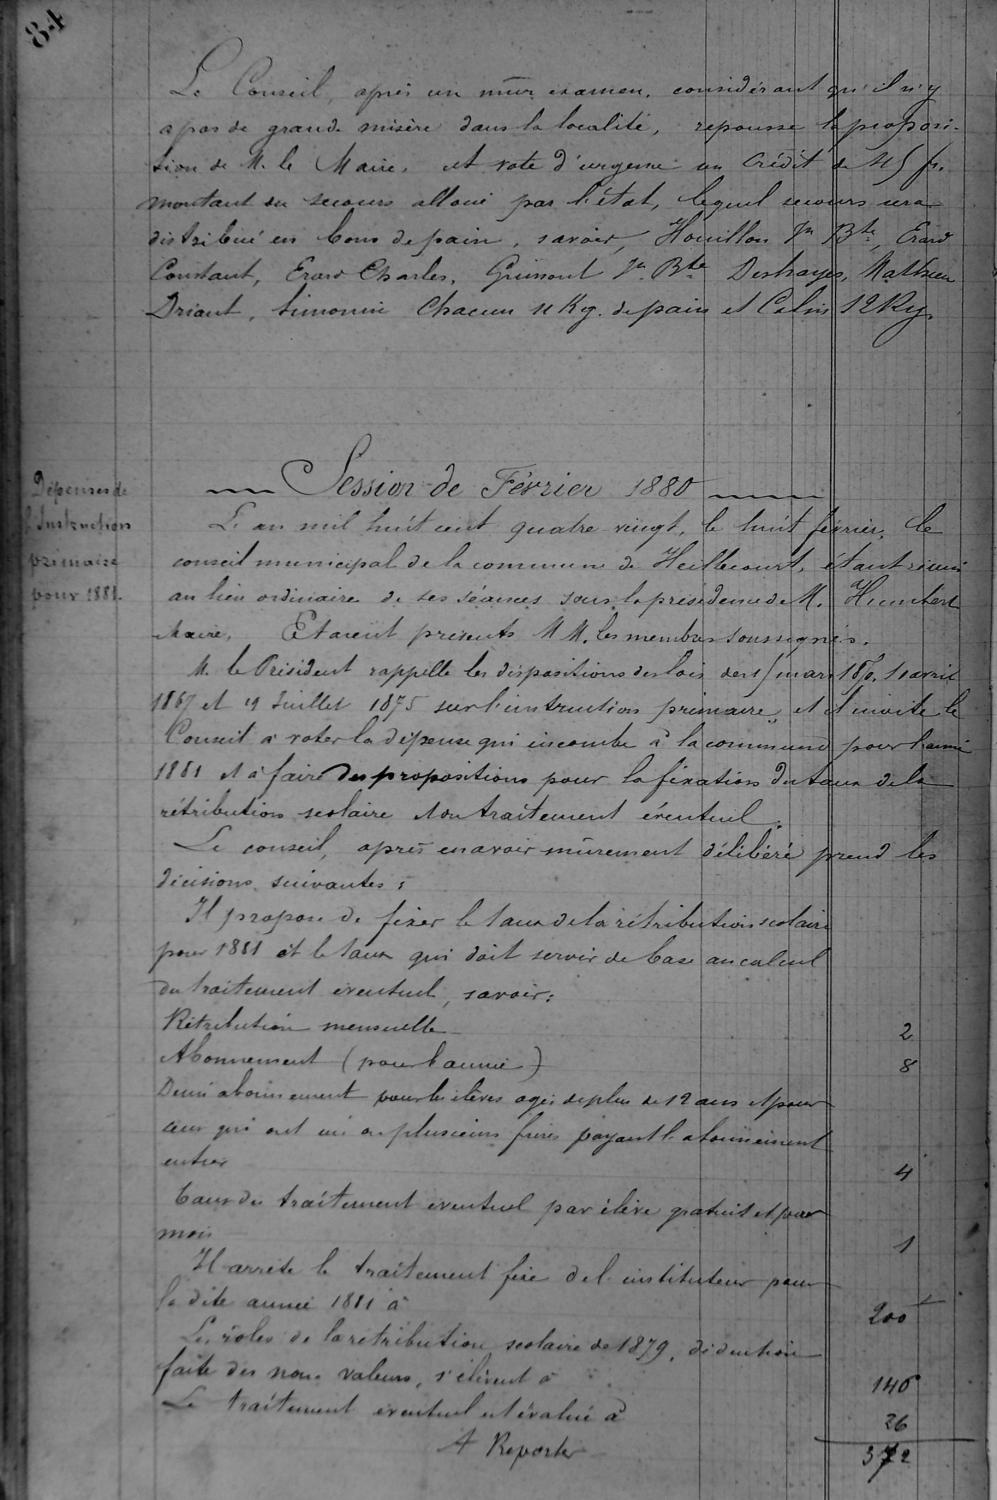 84
Le Conseil, après un mûr examen, considérant qu'il n'y
a pas de grande misère dans la localité, repousse la proposi-
tion de M. le Maire, et vote d'urgence un Crédit de fr.
montant du secours alloué par l'état, lequel secours sera
distribué en bons de pain, savoir, Houillon Jn Bte, Erard
Constant, Erard Charles, Jn Bte Deshayes, Mathieu
Driant, Simonin Chacun 11 Kg. de pain et 12 Kg.
Dépenses de
l'Instruction
primaire
pour 1881.
Session de Février 1880
L'an mil huit cent quatre vingt, le huit février, le
conseil municipal de la commune de Heillecourt, étant réuni
au lieu ordinaire de ses séances sous la présidence de M. Humbert
Maire. Etaient présents MM. les membres soussignés.
M. le Président rappelle les dispositions des lois des 15 mars 1850, 10 avril
1867 et 19 Juillet 1875 sur l'instruction primaire, et il invite le
Conseil à voter la dépense qui incombe à la commune pour l'année
1881 et à faire des propositions pour la fixation du taux de la
rétribution scolaire et du traitement éventuel.
Le conseil, après en avoir mûrement délibéré prend les
décisions suivantes :
Il propose de fixer le taux de la rétribution scolaire
pour 1881 et le taux qui doit servir de base au calcul
du traitement éventuel, savoir :
Rétribution mensuelle 2
Abonnement (pour l'année) 8
Demi abonnement pour les élèves agés de plus de 12 ans et pour
ceux qui ont un ou plusieurs frères payant l'abonnement
entier 4
Taux du traitement éventuel par élève gratuit et par
mois 1
Il arrête le traitement fixe de l'instituteur pour
la dite année 1881 à 200
Les rôles de la rétribution scolaire de 1879, déduction
faite des non valeurs, s'élèvent à 146
Le traitement éventuel est évalué à 26
A Reporter 372